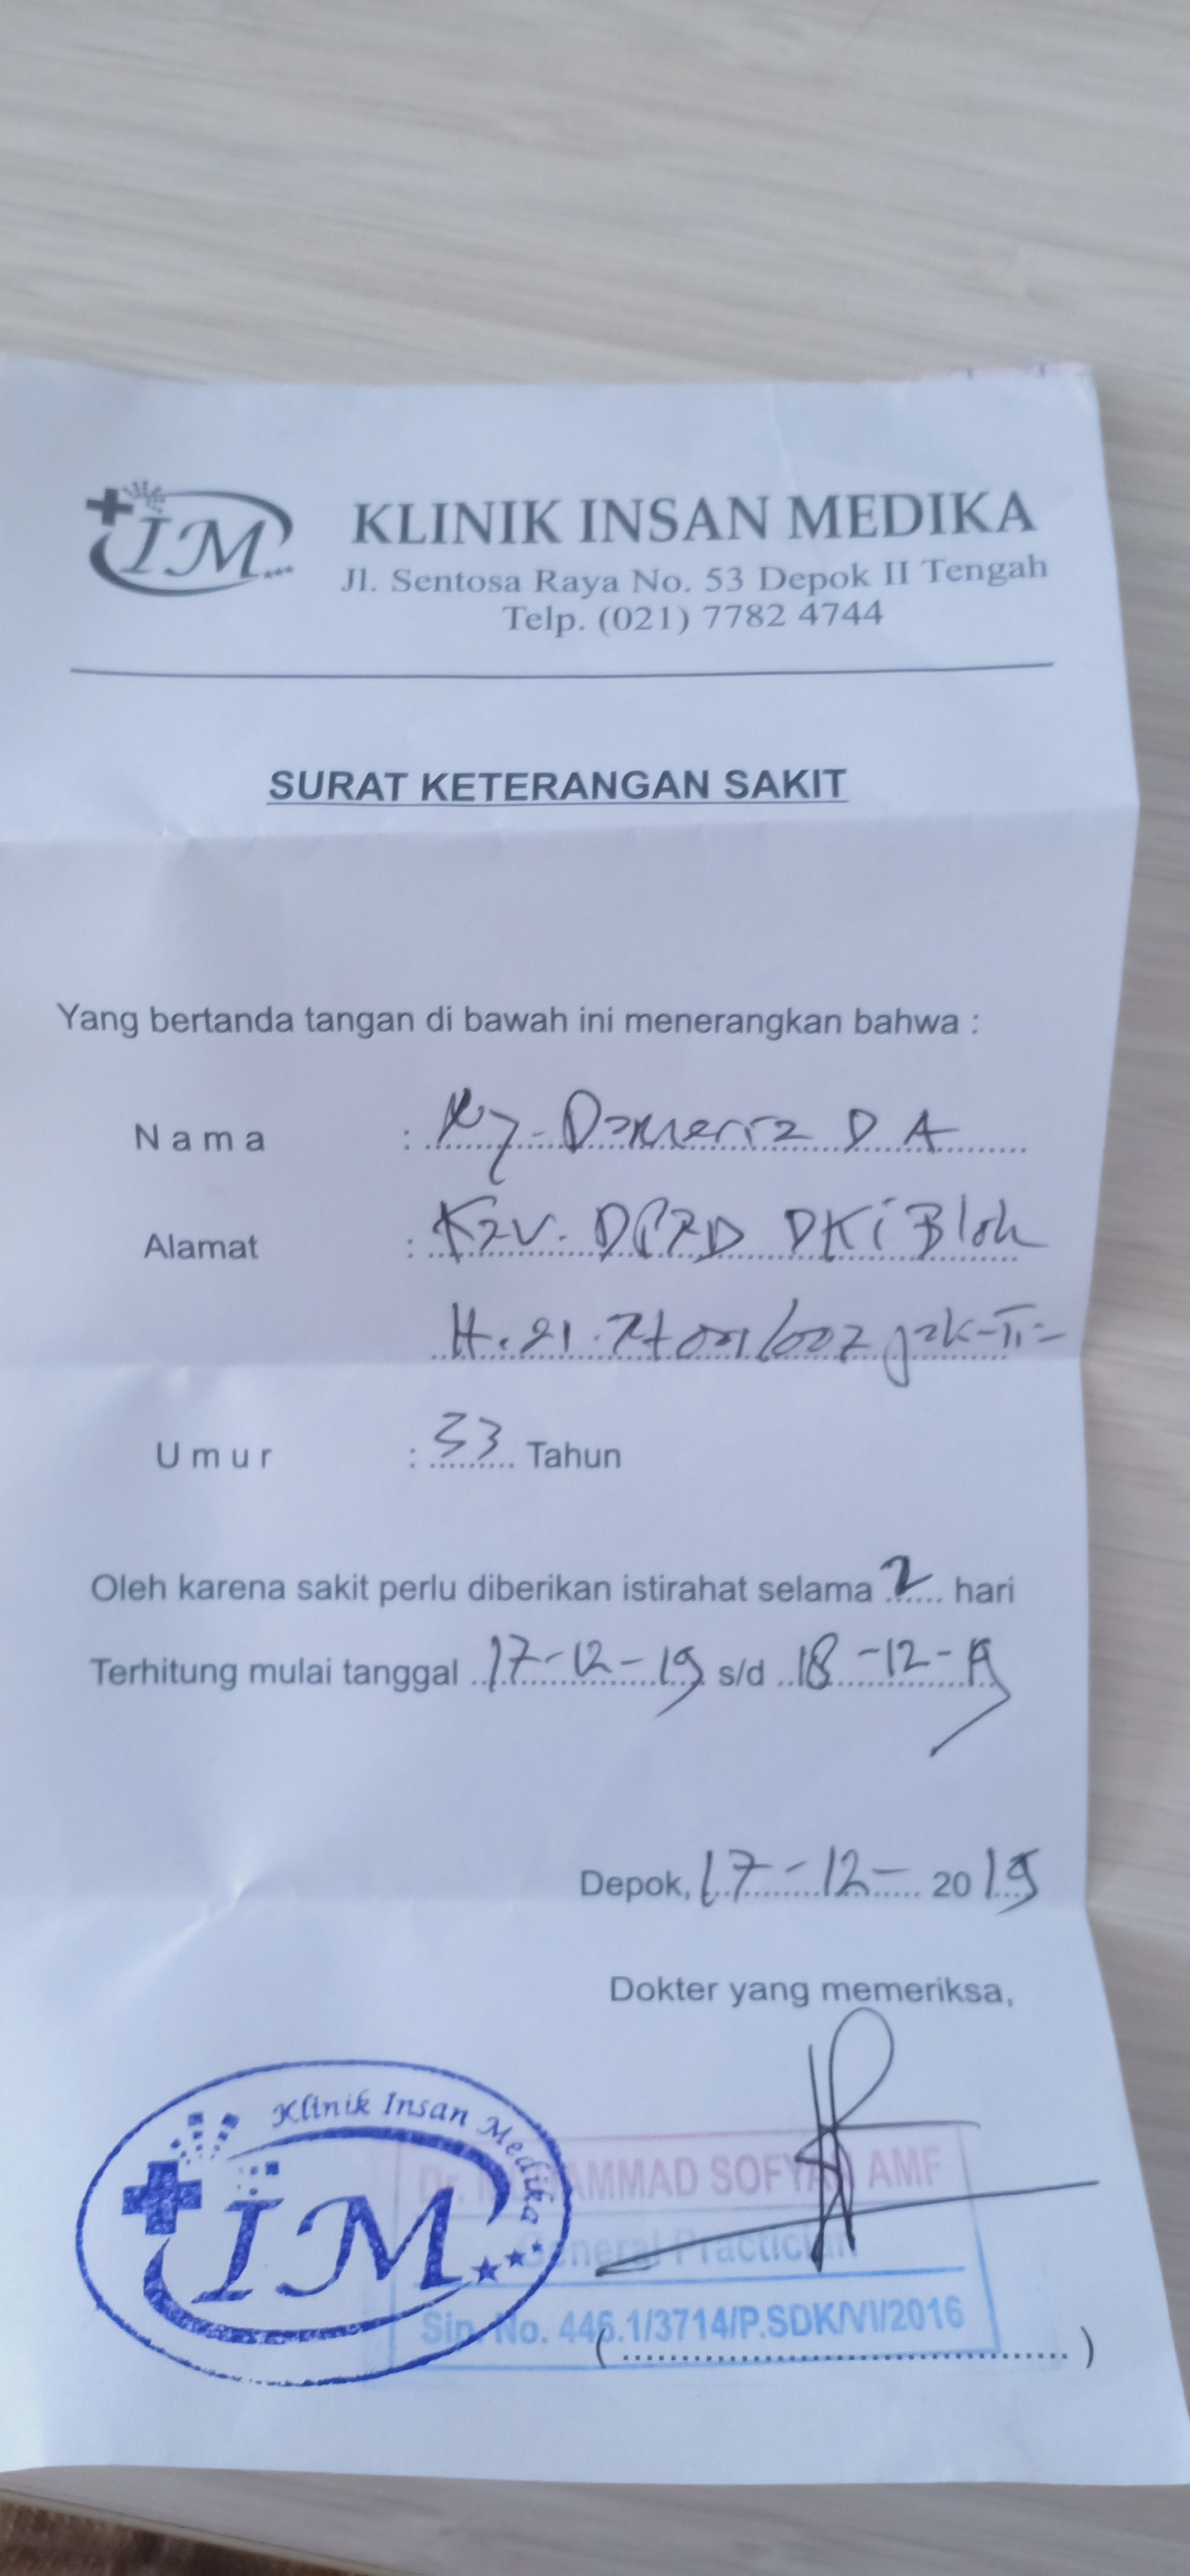 IM
KLINIK INSAN MEDIKA
Jl. Sentosa Raya No. 53 Depok II Tengah
Telp. (021) 7782 4744
SURAT KETERANGAN SAKIT
Yang bertanda tangan di bawah ini menerangkan bahwa :
Nama : Ny. Dameria D A
Alamat : Kav. DPRD DKI Blok
H. 21. Rt 001/007 Jak-Ti=
Umur : 33 Tahun
Oleh karena sakit perlu diberikan istirahat selama 2 hari
Terhitung mulai tanggal 17-12-19 s/d 18-12-19
Depok, 17-12- 2019
Dokter yang memeriksa,
Klinik Insan Medika
IM
Dr. MUHAMMAD SOFYAN AMF
General Practician
Sip. No. 446.1/3714/P.SDK/VI/2016
(..............................)